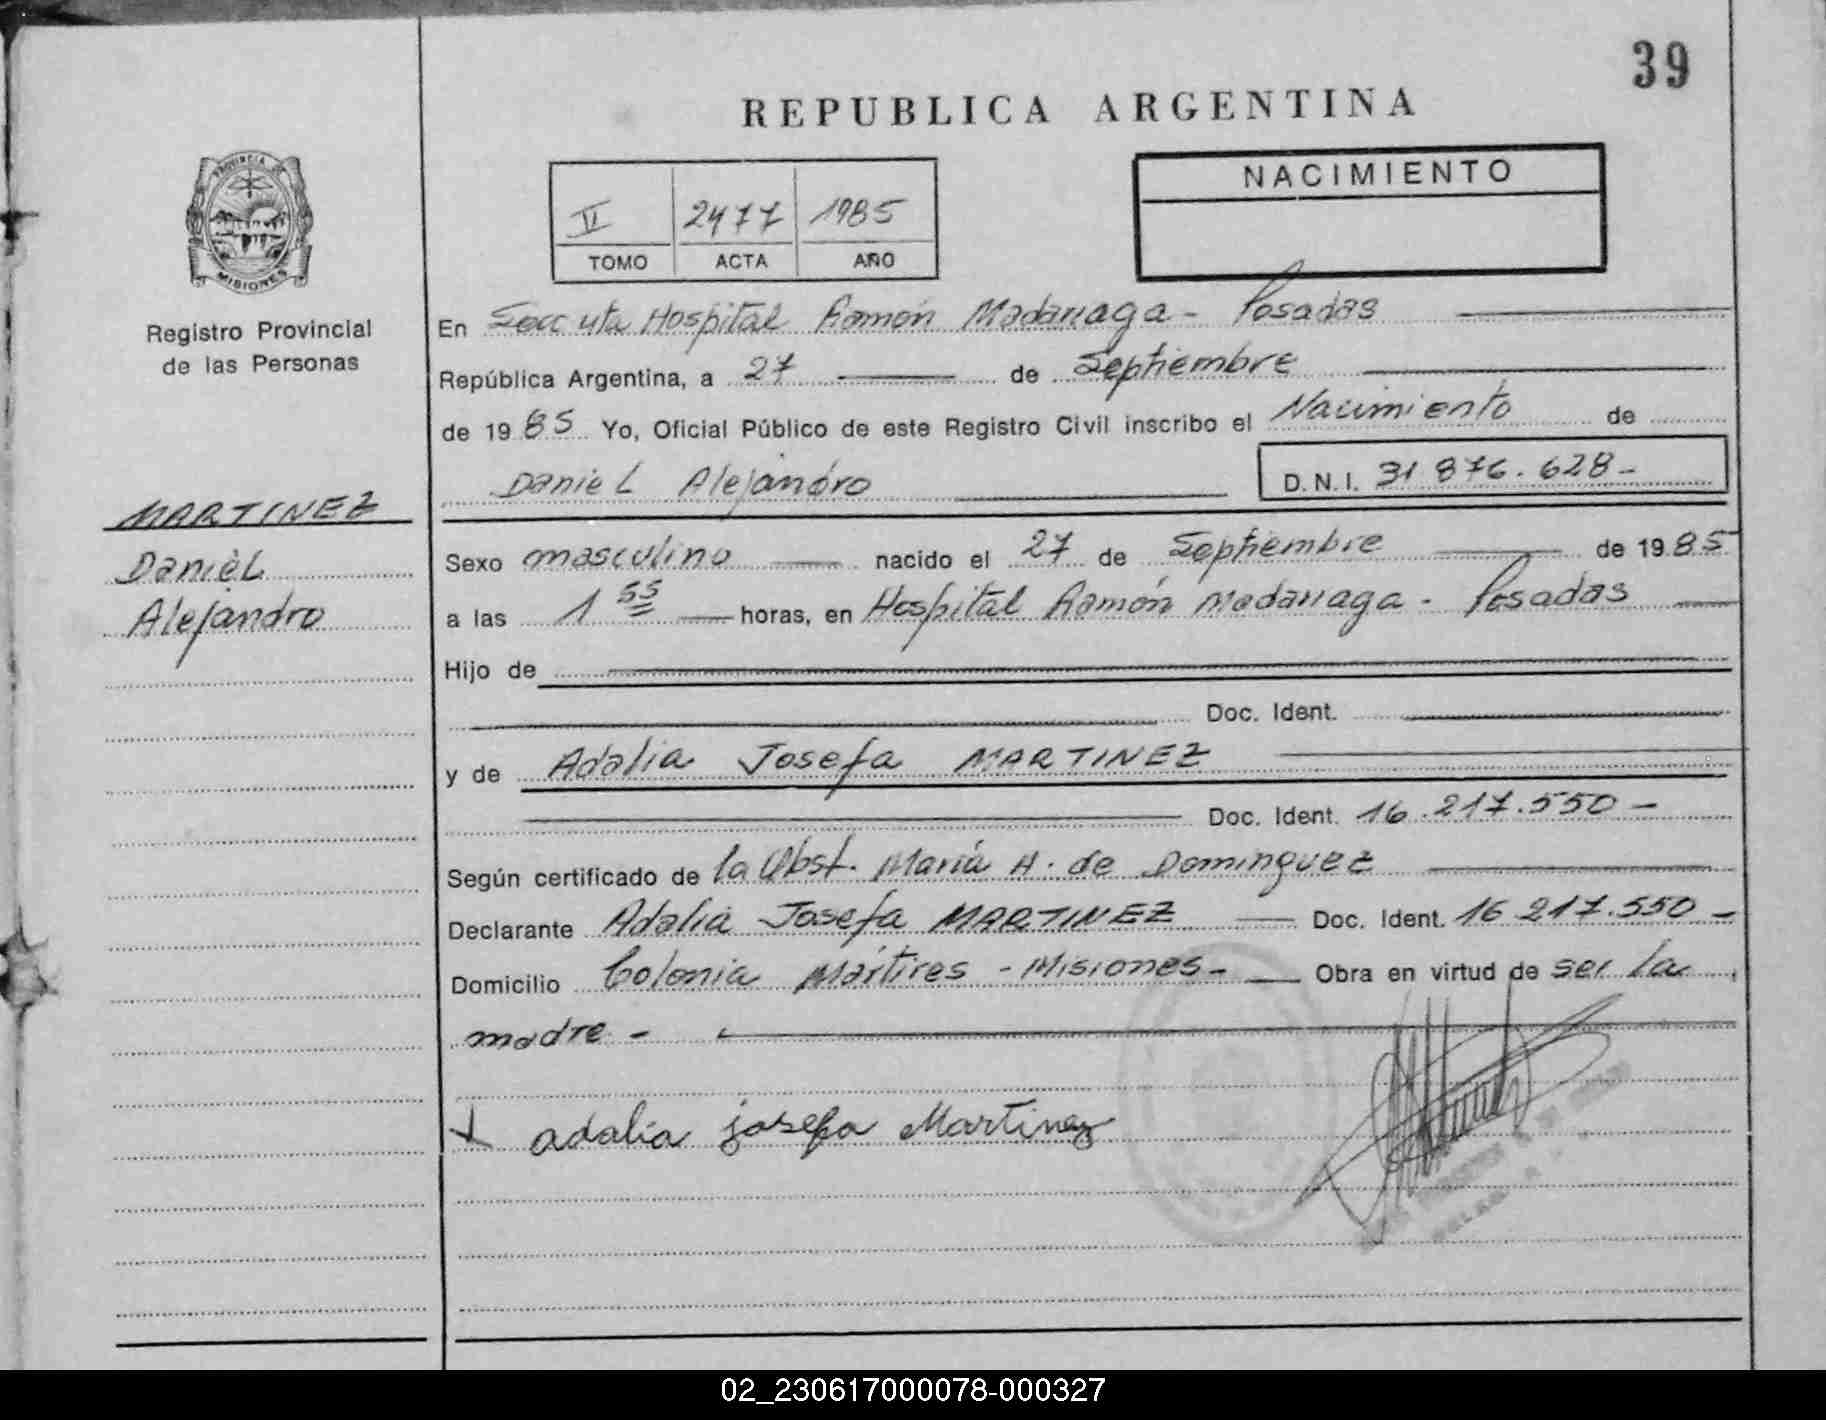 39
REPUBLICA ARGENTINA
PROVINCIA
MISIONES
Registro Provincial
de las Personas
2477 1985
TOMO ACTA AÑO
NACIMIENTO
En Hospital Ramón Madariaga - Posadas
República Argentina, a 27 de Septiembre
de 1985 Yo, Oficial Público de este Registro Civil inscribo el Nacimiento de
Daniel Alejandro D.N.I. 31 876.628-
MARTINEZ
Daniel
Alejandro
Sexo masculino nacido el 27 de Septiembre de 1985
a las 1 55 horas, en Hospital Ramón Madariaga - Posadas
Hijo de
Doc. Ident.
y de Adalia Josefa MARTINEZ
Doc. Ident. 16.217.550 -
Según certificado de la Obst. María H. de Dominguez
Declarante Adalia Josefa MARTINEZ Doc. Ident. 16 217.550 -
Domicilio Colonia Mártires - Misiones - Obra en virtud de ser la
madre -
adalia josefa Martinez
02_230617000078-000327